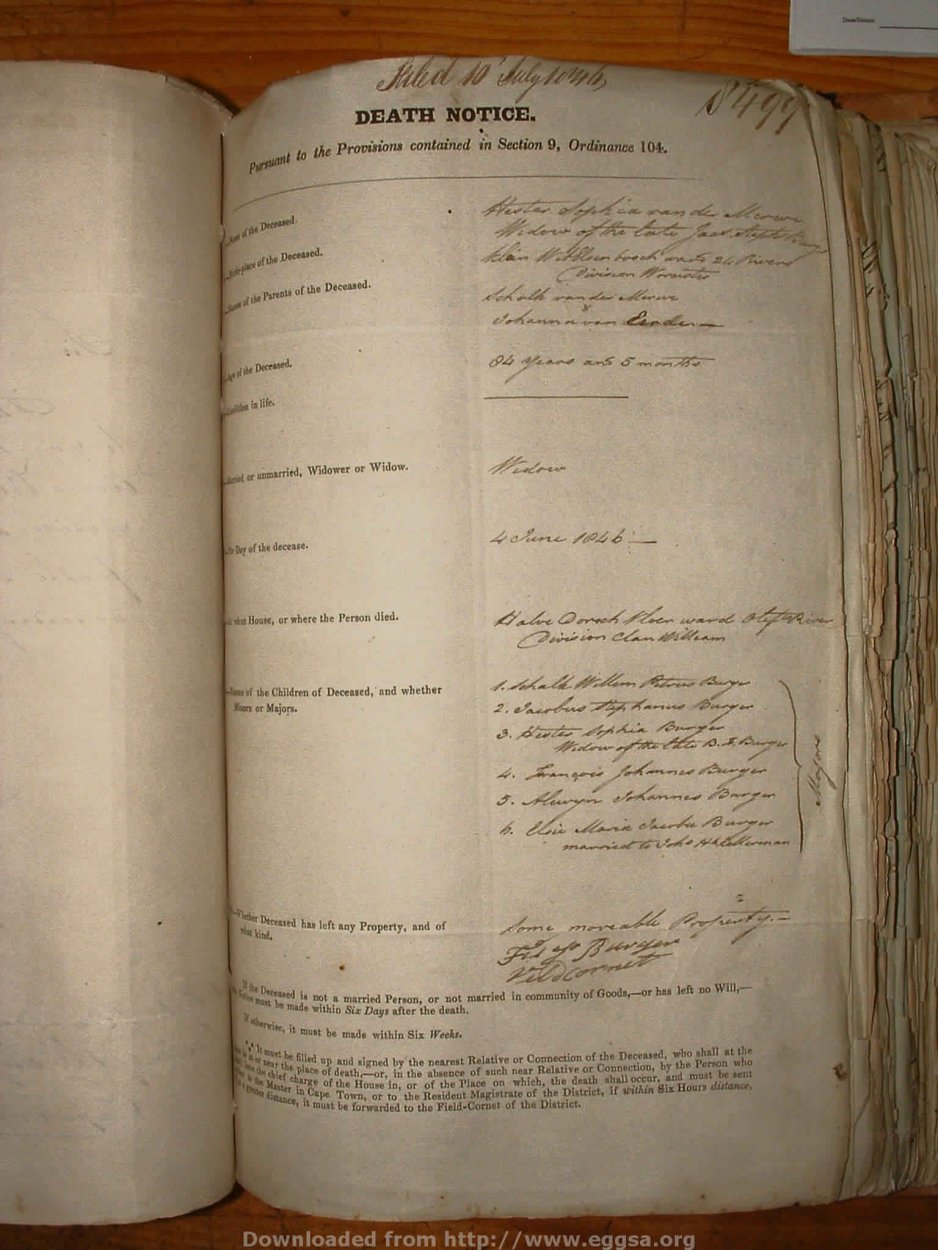 Filed 10 July 1846
8499
DEATH NOTICE.
Pursuant to the Provisions contained in Section 9, Ordinance 104.
Name of the Deceased.
Hester Sophia van der Merwe
Widow of the late Jacs. Steph. Burger
Birth-place of the Deceased.
Klein Wittelsenbosch ward 24 Rivers
Division Worcester
Names of the Parents of the Deceased.
Schalk van der Merwe
Johanna van
Age of the Deceased.
84 years and 5 months
Condition in life.
Married or unmarried, Widower or Widow.
Widow
The Day of the decease.
4 June 1846
In what House, or where the Person died.
Halve Dorsch Vloer ward Olifts River
Division Clan William
Names of the Children of Deceased, and whether
Minors or Majors.
1. Schalk Willem Petrus Burger
2. Jacobus Stephanus Burger
3. Hester Sophia Burger
Widow of the late B. Burger
4. François Johannes Burger
5. Alewyn Johannes Burger
6. Elsie Maria Jacoba Burger
married to Johs
Majors
Whether Deceased has left any Property, and of
what kind.
Some moveable Property.—
Burger
Veldcornet
If the Deceased is not a married Person, or not married in community of Goods,—or has left no Will,—
Notice must be made within Six Days after the death.
If otherwise, it must be made within Six Weeks.
It must be filled up and signed by the nearest Relative or Connection of the Deceased, who shall at the
time be at or near the place of death,—or, in the absence of such near Relative or Connection, by the Person who
shall have the chief charge of the House in, or of the Place on which, the death shall occur, and must be sent
to the Master in Cape Town, or to the Resident Magistrate of the District, if within Six Hours distance,
greater distance, it must be forwarded to the Field-Cornet of the District.
Downloaded from http://www.eggsa.org